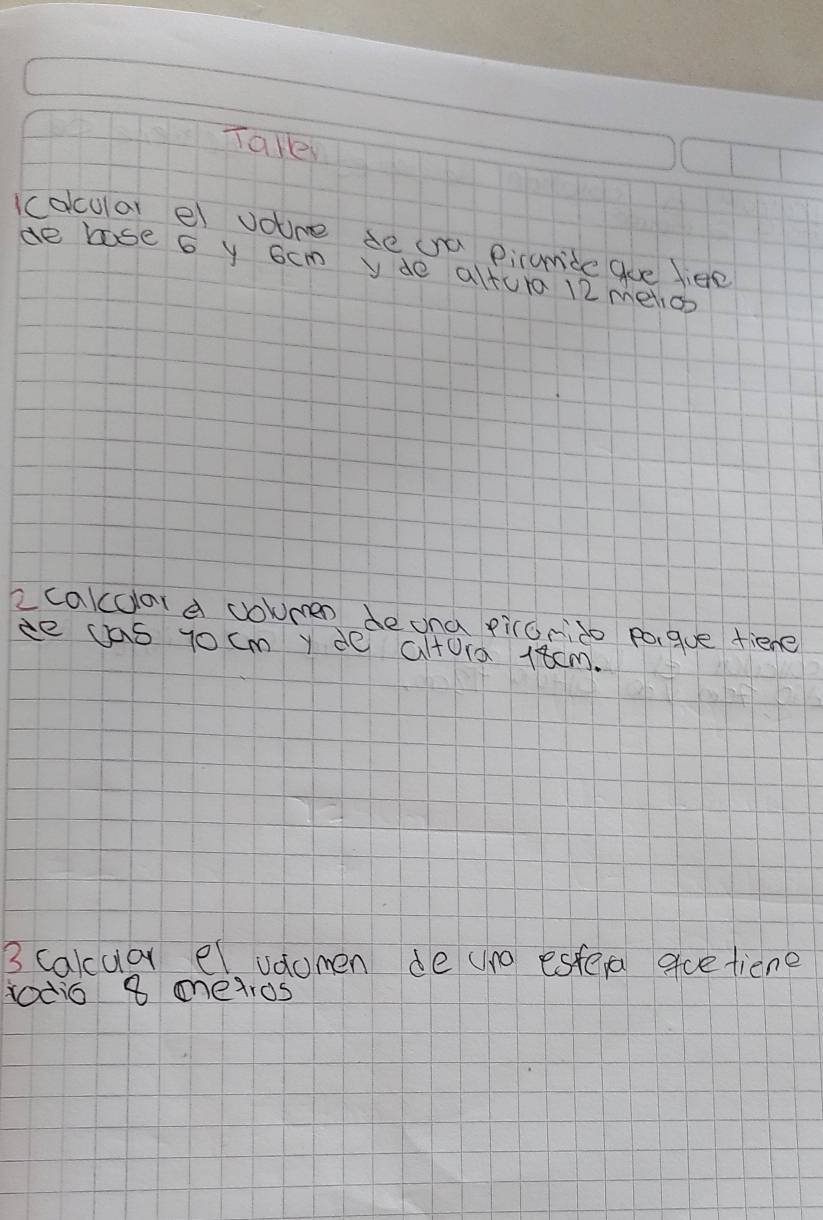 Taller
1 calcular el volume de una piramide que tiene
de base 6 y 6cm y de altura 12 metros
2 calcular el volumen de una piramido porque tiene
de vas 10 cm y de altura 18cm.
3 calcular el volumen de una esfera que tiene
radio 8 metros